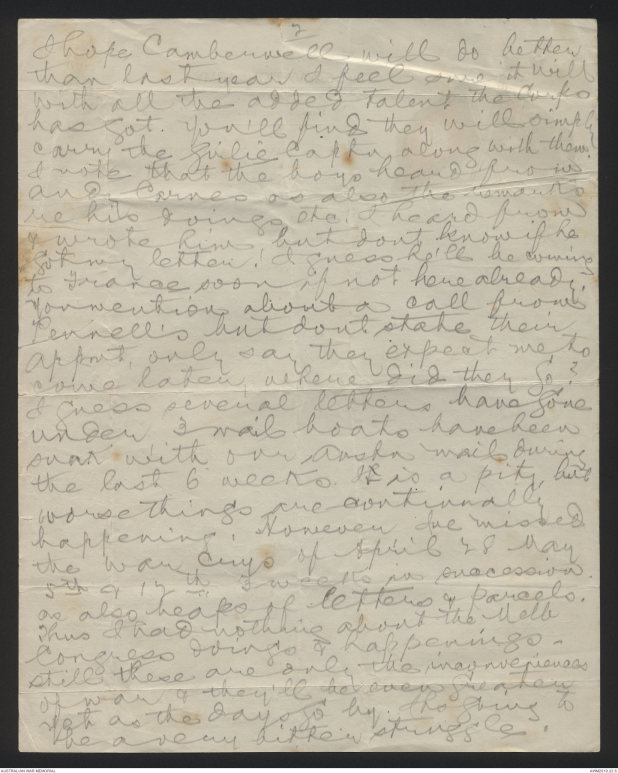 2
I hope Camberwell will do better
than last year I feel sure it will
with all the added talent the Corps
has got. You'll find they will simply
carry the Guilie Captn along with them.
I note that the boys heard from
and Carnes as also the
re his doings etc. I heard from
& wrote him but dont know if he
got my letter. I guess he'll be coming
to France soon if not here already.
You mention about a call from
Pennell's but dont state their
appmt, only say they expect me to
come later, where did they go?
I guess several letters have gone
under 3 mail boats have been
sunk with our Austn mail during
the last 6 weeks. It is a pity, but
worse things are continually
happening. However Ive missed
the War Crys of April 28 May
5th & 12th 3 weeks in succession.
as also heaps of letters & parcels.
Thus I had nothing about the Melb
Congress doings & happenings -
still these are only the inconveniences
of war & they'll be even greater
yet as the days go by. Its going to
be a very bitter struggle.
AUSTRALIAN WAR MEMORIAL